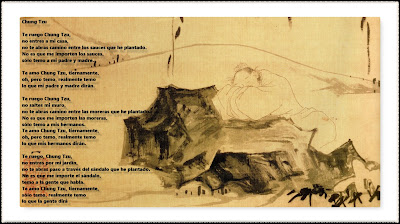 Chung Tzu
Te ruego Chung Tzu,
no entres a mi casa,
no te abras camino entre los sauces que he plantado.
No es que me importen los sauces,
sólo temo a mi padre y madre.
Te amo Chung Tzu, tiernamente,
oh, pero temo, realmente temo
lo que mi padre y madre dirán.
Te ruego Chung Tzu,
no saltes mi muro,
no te abras camino entre las moreras que he plantado.
No es que me importen las moreras,
sólo temo a mis hermanos.
Te amo Chung Tzu, tiernamente,
oh, pero temo, realmente temo
lo que mis hermanos dirán.
Te ruego, Chung Tzu,
no entres por mi jardín,
no te abras paso a través del sándalo que he plantado.
No es que me importe el sándalo,
temo a la gente que habla.
Te amo Chung Tzu, tiernamente,
oh, pero temo, realmente temo
lo que la gente dirá